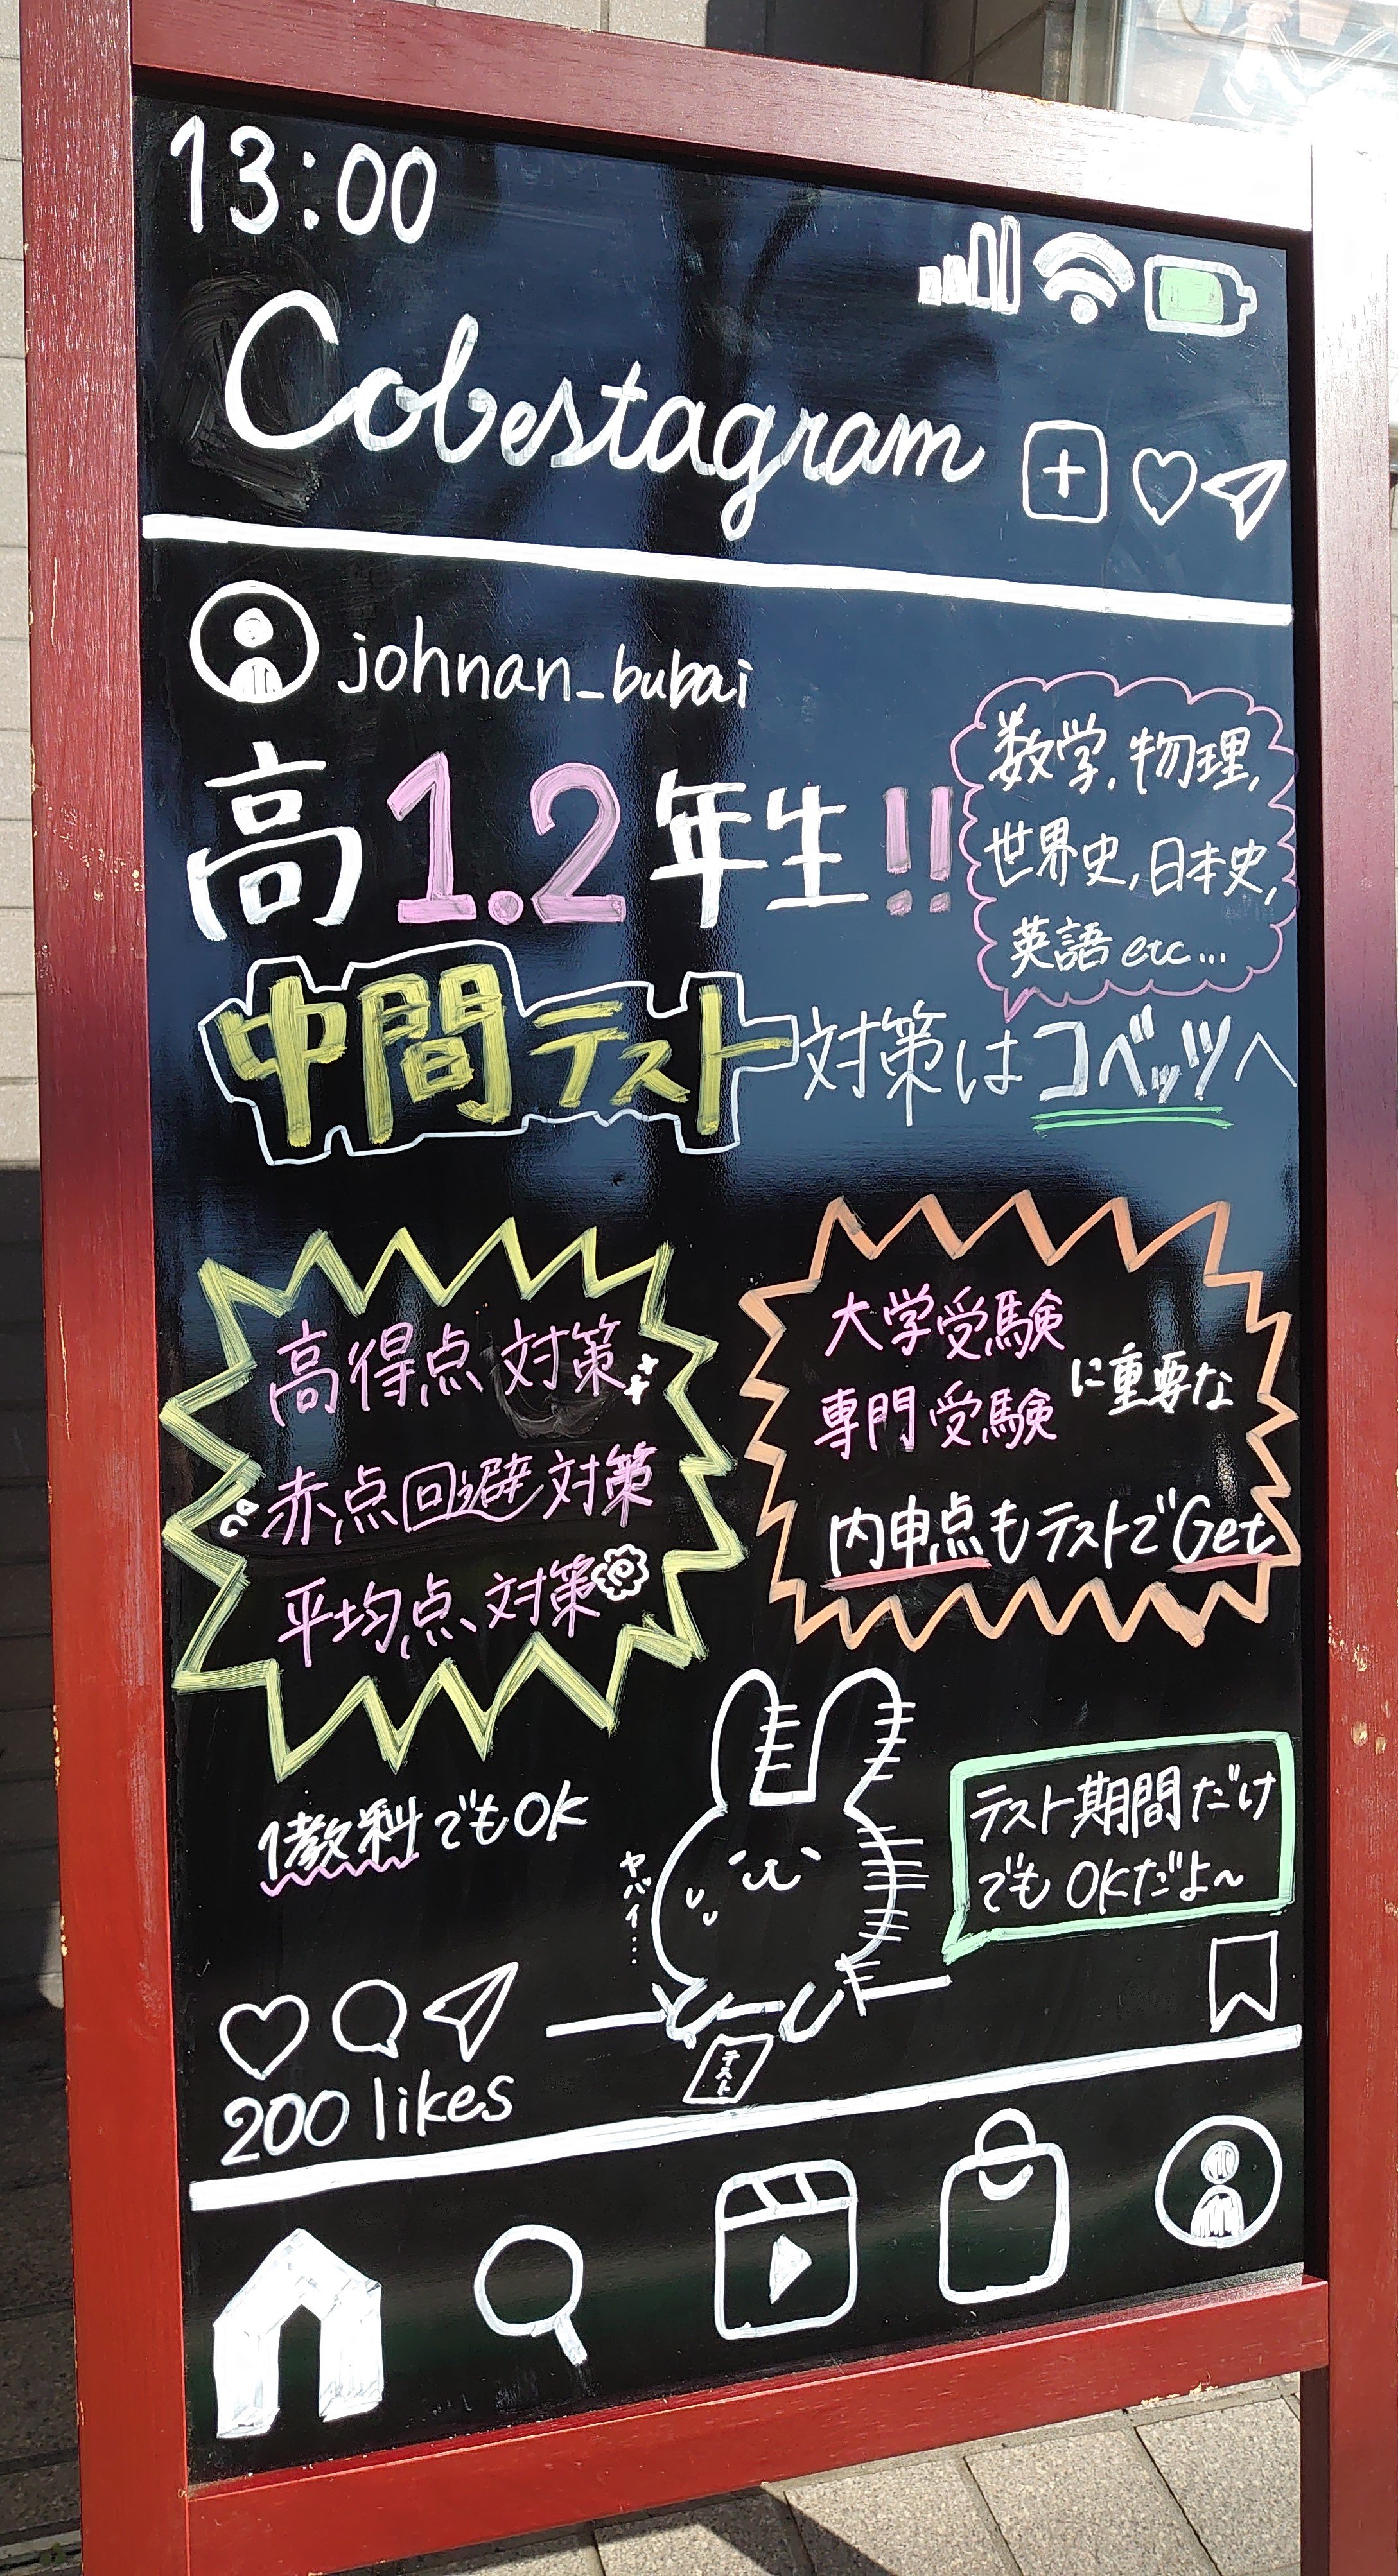 13:00
Cobestagram
johnan_bubai
高1.2年生!!
数学,物理,
世界史,日本史,
英語etc...
中間テスト対策はコベッツへ
高得点対策
赤点回避対策
平均点対策
大学受験
専門受験
に重要な
内申点もテストでGet
1教科でもOK
ヤバイ...
テスト期間だけ
でもOKだよ〜
テスト
200 likes